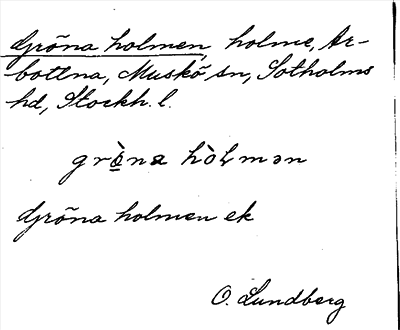 Gröna holmen, holme, Ar-
bottna, Muskö sn, Sotholms
hd, Stockh. l.
grö̀na hòlmən
Gröna holmen ek
O. Lundberg